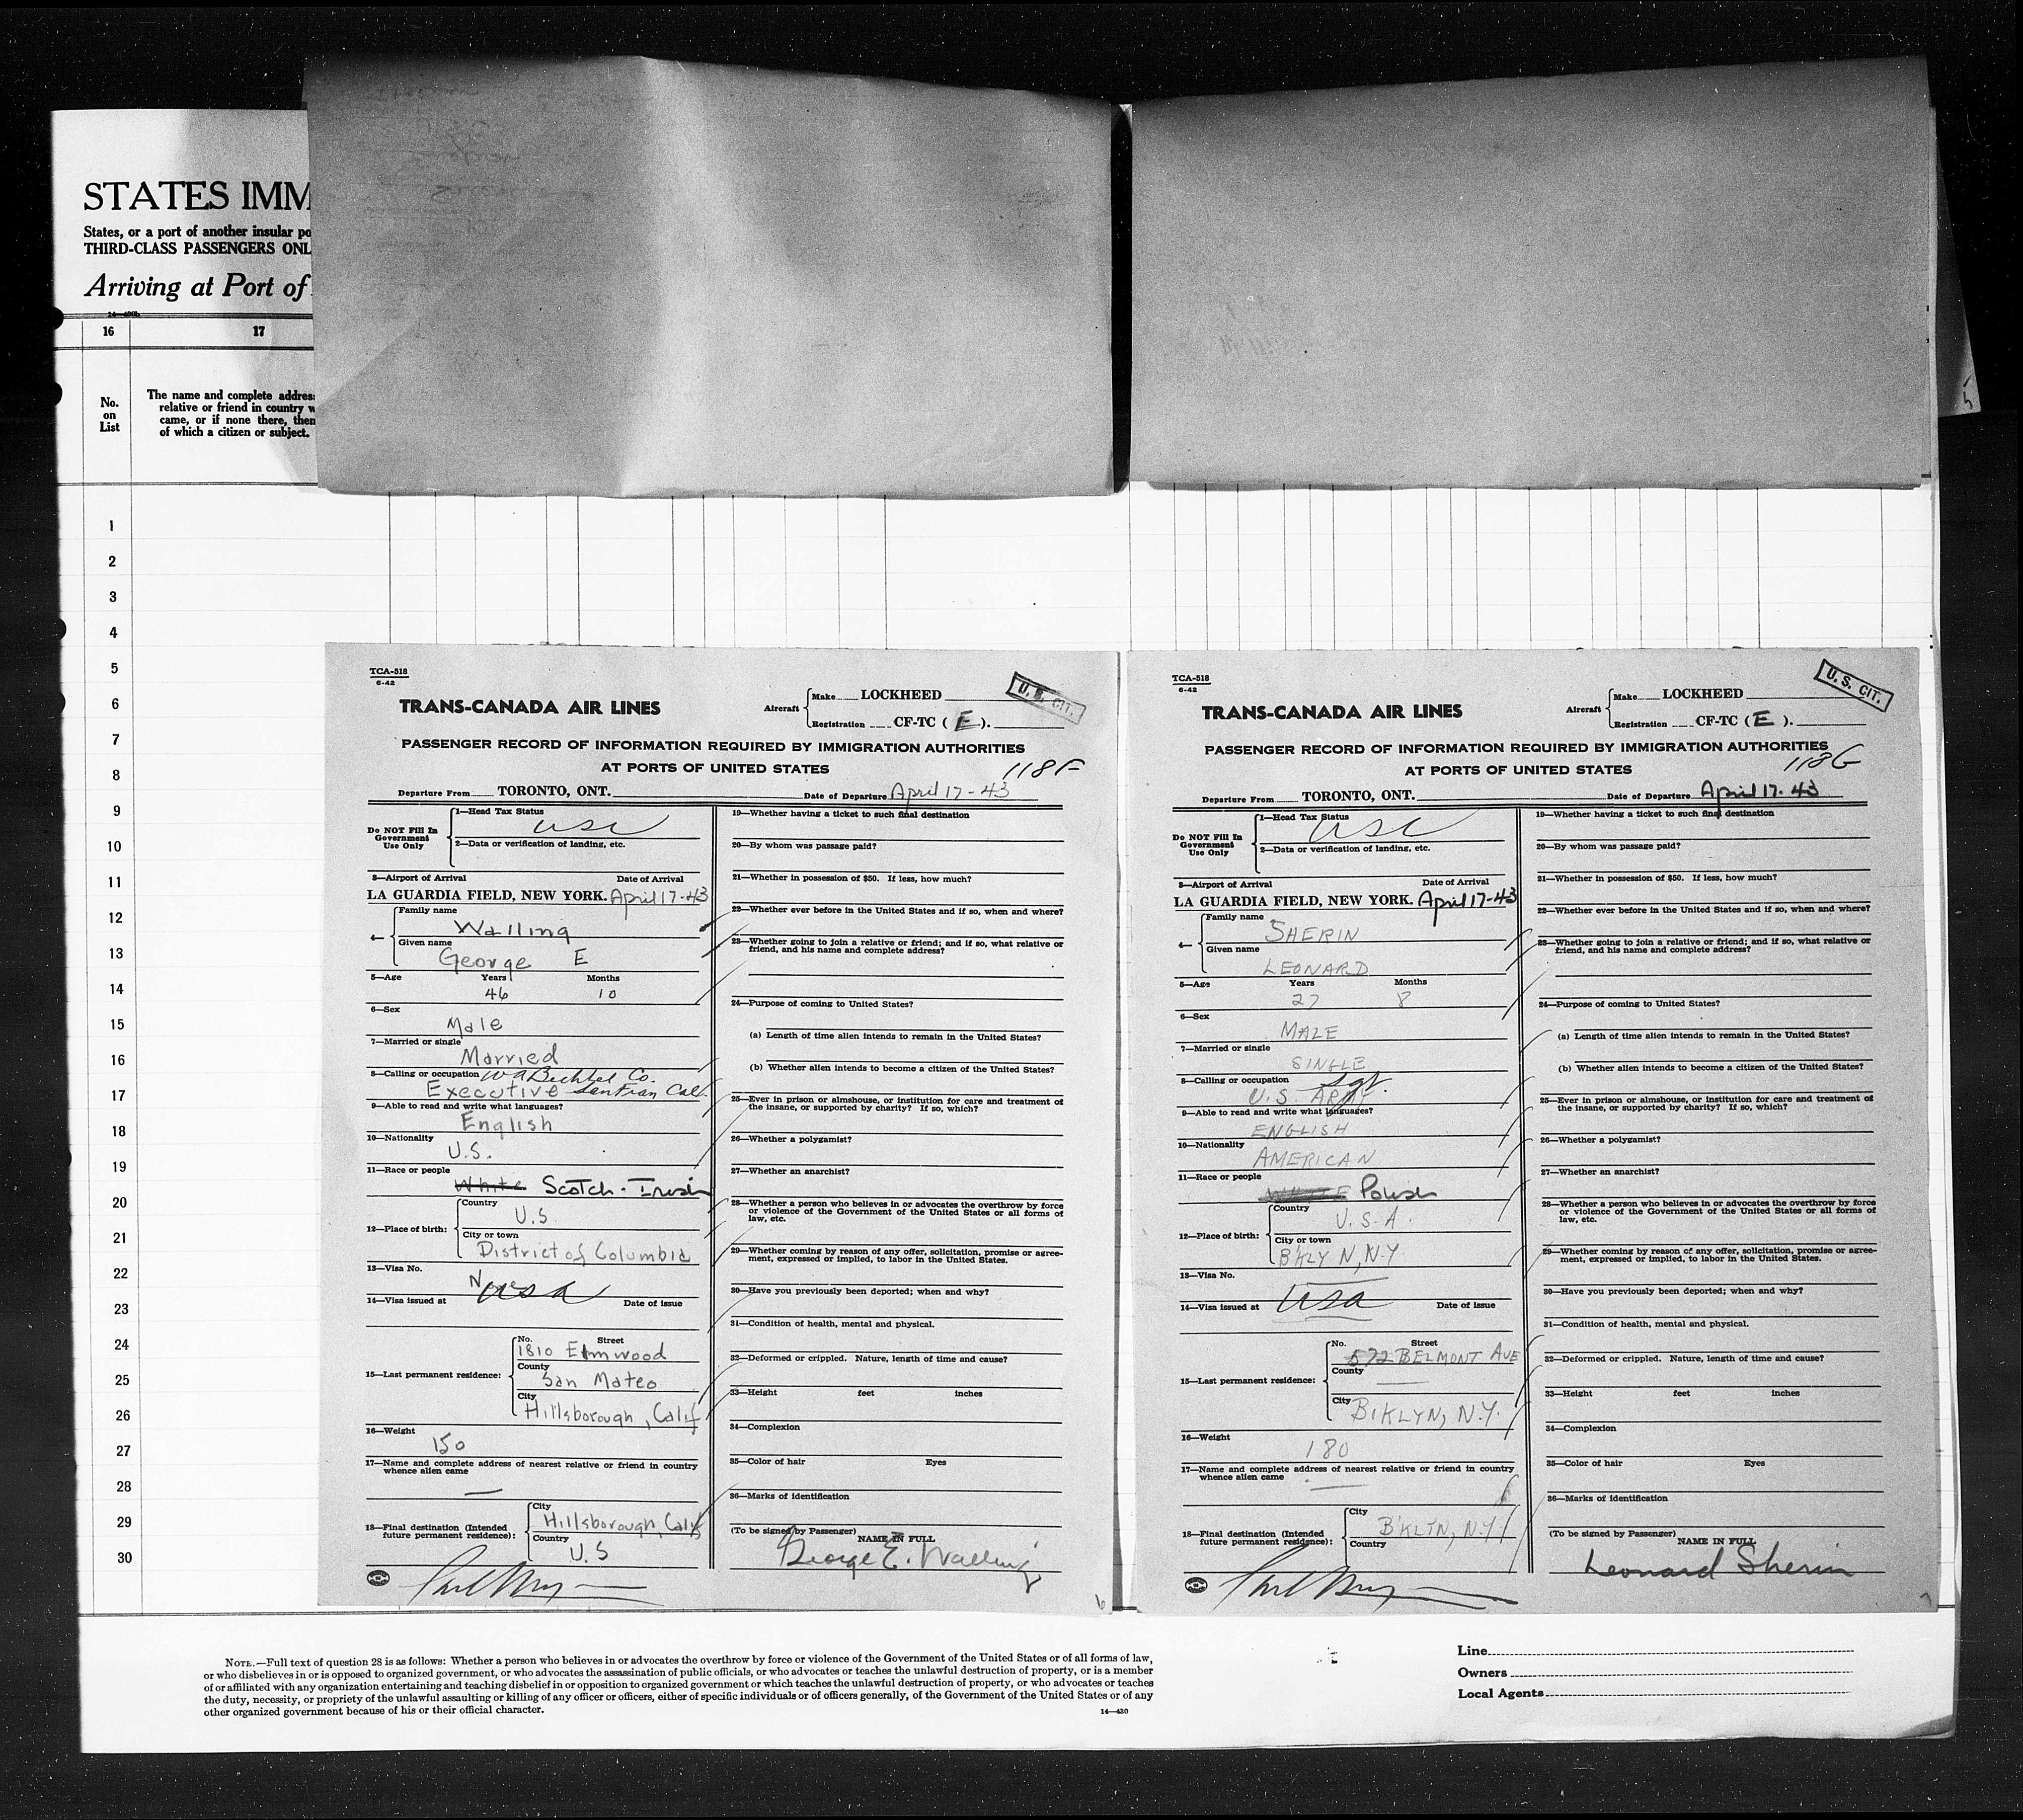 STATES IMM
States, or a port of another insular po
THIRD-CLASS PASSENGERS ONL
Arriving at Port of
14—430b
16 17
No. on List
The name and complete addres
relative or friend in country w
came, or if none there, then
of which a citizen or subject.
1
2
3
4
5
6
7
8
9
10
11
12
13
14
15
16
17
18
19
20
21
22
23
24
25
26
27
28
29
30
TCA-518
6-42
TRANS-CANADA AIR LINES
Aircraft
Make LOCKHEED
Registration CF-TC ( E ).
U. S. CIT.
PASSENGER RECORD OF INFORMATION REQUIRED BY IMMIGRATION AUTHORITIES
AT PORTS OF UNITED STATES
118F
Departure From TORONTO, ONT. Date of Departure April 17-43
Do NOT Fill In
Government
Use Only
1—Head Tax Status
usc
2—Data or verification of landing, etc.
3—Airport of Arrival Date of Arrival
LA GUARDIA FIELD, NEW YORK. April 17-43
4—
Family name
Walling
Given name
George E
5—Age Years Months
46 10
6—Sex
Male
7—Married or single
Married
8—Calling or occupation W A Bechtel Co.
Executive San Fran Cal.
9—Able to read and write what languages?
English
10—Nationality
U.S.
11—Race or people
White Scotch-Irish
12—Place of birth:
Country
U.S.
City or town
District of Columbia
13—Visa No.
None
usa
14—Visa issued at Date of issue
15—Last permanent residence:
No. Street
1810 Elmwood
County
San Mateo
City
Hillsborough, Calif
16—Weight
150
17—Name and complete address of nearest relative or friend in country
whence alien came
—
18—Final destination (Intended
future permanent residence):
City
Hillsborough, Calif
Country
U.S
19—Whether having a ticket to such final destination
20—By whom was passage paid?
21—Whether in possession of $50. If less, how much?
22—Whether ever before in the United States and if so, when and where?
23—Whether going to join a relative or friend; and if so, what relative or
friend, and his name and complete address?
24—Purpose of coming to United States?
(a) Length of time alien intends to remain in the United States?
(b) Whether alien intends to become a citizen of the United States?
25—Ever in prison or almshouse, or institution for care and treatment of
the insane, or supported by charity? If so, which?
26—Whether a polygamist?
27—Whether an anarchist?
28—Whether a person who believes in or advocates the overthrow by force
or violence of the Government of the United States or all forms of
law, etc.
29—Whether coming by reason of any offer, solicitation, promise or agree-
ment, expressed or implied, to labor in the United States.
30—Have you previously been deported; when and why?
31—Condition of health, mental and physical.
32—Deformed or crippled. Nature, length of time and cause?
33—Height feet inches
34—Complexion
35—Color of hair Eyes
36—Marks of identification
(To be signed by Passenger) NAME IN FULL
George E. Walling
6
TCA-518
6-42
TRANS-CANADA AIR LINES
Aircraft
Make LOCKHEED
Registration CF-TC ( E ).
U. S. CIT.
PASSENGER RECORD OF INFORMATION REQUIRED BY IMMIGRATION AUTHORITIES
AT PORTS OF UNITED STATES
118G
Departure From TORONTO, ONT. Date of Departure April 17-43
Do NOT Fill In
Government
Use Only
1—Head Tax Status
usc
2—Data or verification of landing, etc.
3—Airport of Arrival Date of Arrival
LA GUARDIA FIELD, NEW YORK. April 17-43
4—
Family name
SHERIN
Given name
LEONARD
5—Age Years Months
27 8
6—Sex
MALE
7—Married or single
SINGLE
8—Calling or occupation Sgt.
U.S. ARMY
9—Able to read and write what languages?
ENGLISH
10—Nationality
AMERICAN
11—Race or people
WHITE Polish
12—Place of birth:
Country
U.S.A.
City or town
B'KLYN, N.Y
13—Visa No.
usa
14—Visa issued at Date of issue
15—Last permanent residence:
No. Street
572 BELMONT AVE
County
—
City
B'KLYN, N.Y.
16—Weight
180
17—Name and complete address of nearest relative or friend in country
whence alien came
—
18—Final destination (Intended
future permanent residence):
City
B'KLYN, N.Y.
Country
19—Whether having a ticket to such final destination
20—By whom was passage paid?
21—Whether in possession of $50. If less, how much?
22—Whether ever before in the United States and if so, when and where?
23—Whether going to join a relative or friend; and if so, what relative or
friend, and his name and complete address?
24—Purpose of coming to United States?
(a) Length of time alien intends to remain in the United States?
(b) Whether alien intends to become a citizen of the United States?
25—Ever in prison or almshouse, or institution for care and treatment of
the insane, or supported by charity? If so, which?
26—Whether a polygamist?
27—Whether an anarchist?
28—Whether a person who believes in or advocates the overthrow by force
or violence of the Government of the United States or all forms of
law, etc.
29—Whether coming by reason of any offer, solicitation, promise or agree-
ment, expressed or implied, to labor in the United States.
30—Have you previously been deported; when and why?
31—Condition of health, mental and physical.
32—Deformed or crippled. Nature, length of time and cause?
33—Height feet inches
34—Complexion
35—Color of hair Eyes
36—Marks of identification
(To be signed by Passenger) NAME IN FULL
Leonard Sherin
7
NOTE.—Full text of question 28 is as follows: Whether a person who believes in or advocates the overthrow by force or violence of the Government of the United States or of all forms of law,
or who disbelieves in or is opposed to organized government, or who advocates the assassination of public officials, or who advocates or teaches the unlawful destruction of property, or is a member
of or affiliated with any organization entertaining and teaching disbelief in or opposition to organized government or which teaches the unlawful destruction of property, or who advocates or teaches
the duty, necessity, or propriety of the unlawful assaulting or killing of any officer or officers, either of specific individuals or of officers generally, of the Government of the United States or of any
other organized government because of his or their official character.
14—430
Line
Owners
Local Agents